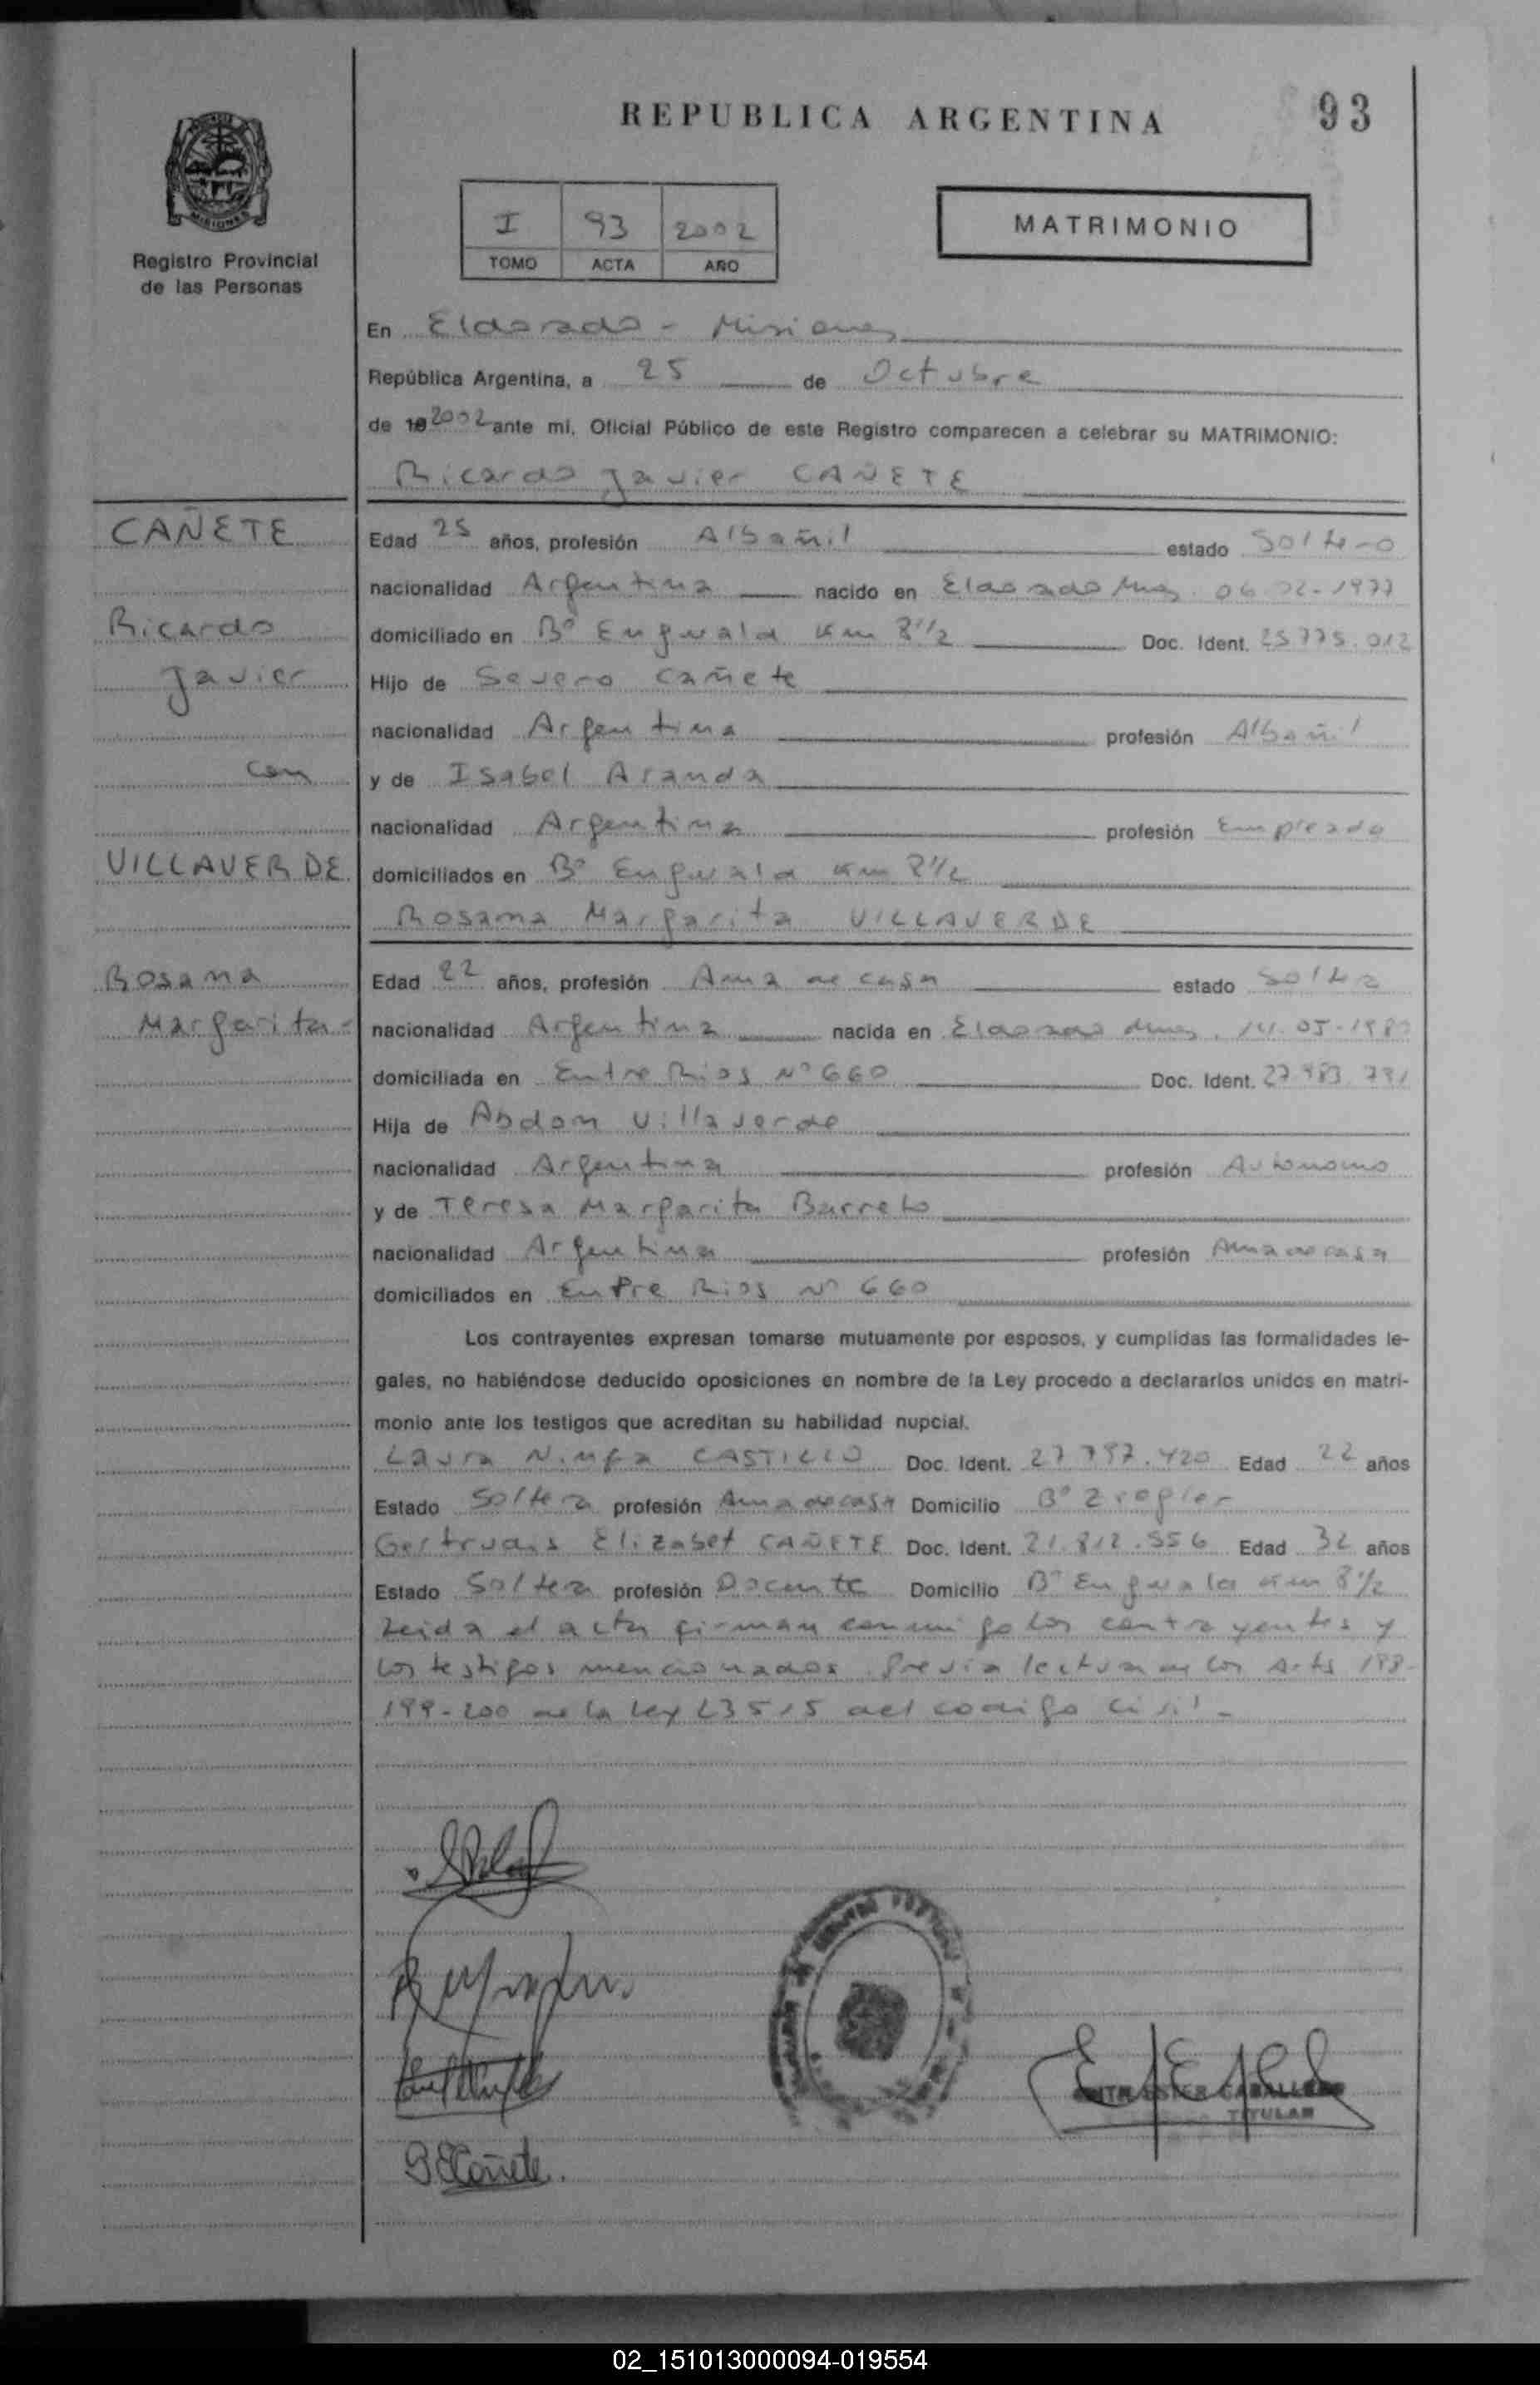 REPUBLICA ARGENTINA
93
MISIONES
Registro Provincial
de las Personas
I 93 2002
TOMO ACTA AÑO
MATRIMONIO
En Eldorado - Misiones
República Argentina, a 25 de Octubre
de 19 2002 ante mi, Oficial Público de este Registro comparecen a celebrar su MATRIMONIO:
Ricardo Javier CAÑETE
CAÑETE
Ricardo
Javier
con
VILLAVERDE
Rosana
Margarita-
Edad 25 años, profesión Albañil estado Soltero
nacionalidad Argentina nacido en Eldorado Mnes. 06-02-1977
domiciliado en B° Enguald Km 8½ Doc. Ident. 25.775.012
Hijo de Severo Cañete
nacionalidad Argentina profesión Albañil
y de Isabel Aranda
nacionalidad Argentina profesión Empleada
domiciliados en B° Km 8½
Rosana Margarita VILLAVERDE
Edad 22 años, profesión Ama de casa estado Soltera
nacionalidad Argentina nacida en Eldorado Mnes.
domiciliada en Entre Rios N° 660 Doc. Ident.
Hija de Abdon Villaverde
nacionalidad Argentina profesión Autonomo
y de Teresa Margarita Barreto
nacionalidad Argentina profesión Ama de casa
domiciliados en Entre Rios N° 660
Los contrayentes expresan tomarse mutuamente por esposos, y cumplidas las formalidades le-
gales, no habiéndose deducido oposiciones en nombre de la Ley procedo a declararlos unidos en matri-
monio ante los testigos que acreditan su habilidad nupcial.
Laura Ninfa CASTILLO Doc. Ident. 27.797.420 Edad 22 años
Estado Soltera profesión Ama de casa Domicilio B°
Gertrudis Elizabet CAÑETE Doc. Ident. 21.812.556 Edad 32 años
Estado Soltera profesión Docente Domicilio B° Km 8½
Leida el acta firman conmigo los contrayentes y
los testigos mencionados. Previa lectura de los Arts 198-
199-200 de la Ley 23515 del codigo Civil-
G E Cañete.
ESTER CABALLERO
TITULAR
02_151013000094-019554